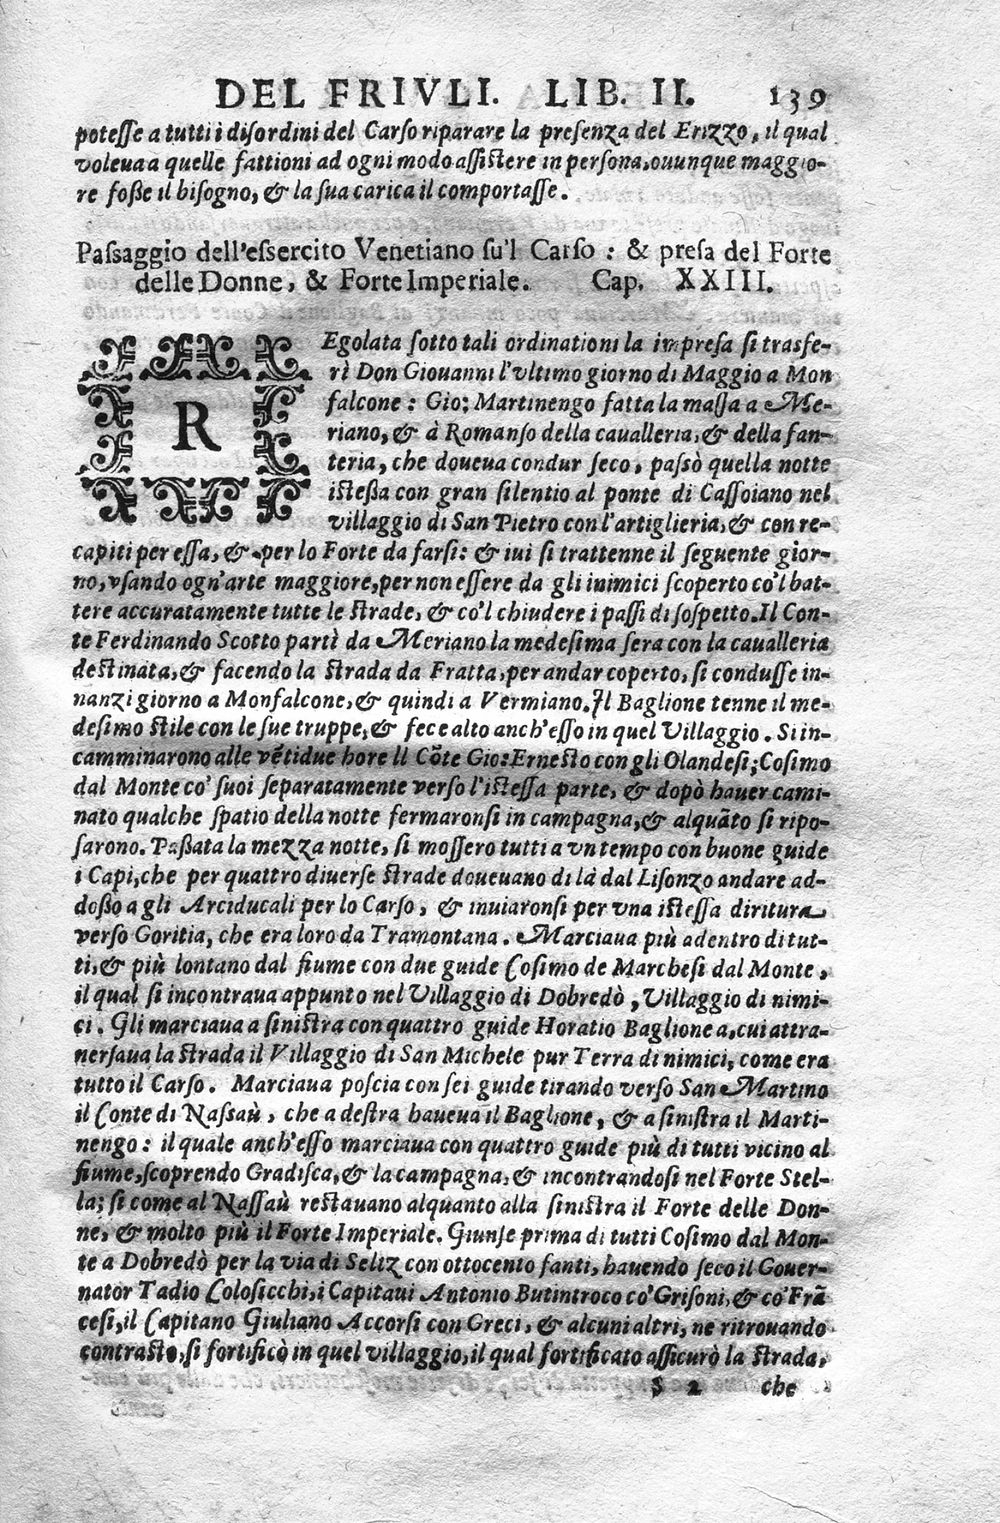 DEL FRIVLI. LIB. II. 139
poteſſe a tutti i diſordini del Carſo riparare la preſenza del Erizzo, il qual
voleua a quelle fattioni ad ogni modo aſſiſtere in perſona, ouunque maggio-
re foſſe il biſogno, & la ſua carica il comportaſſe.
Paſsaggio dell'eſsercito Venetiano ſu'l Carſo: & preſa del Forte
delle Donne, & Forte Imperiale. Cap. XXIII.
REgolata ſotto tali ordinationi la impreſa ſi trasfe-
rì Don Giouanni l'vltimo giorno di Maggio a Mon
falcone: Gio: Martinengo fatta la maſſa a Me-
riano, & à Romanſo della caualleria, & della fan-
teria, che doueua condur ſeco, paſsò quella notte
iſteſſa con gran ſilentio al ponte di Caſſoiano nel
villaggio di San Pietro con l'artiglieria, & con re-
capiti per eſſa, & per lo Forte da farſi: & iui ſi trattenne il ſeguente gior-
no, vſando ogn'arte maggiore, per non eſſere da gli inimici ſcoperto co'l bat-
tere accuratamente tutte le ſtrade, & co'l chiudere i paſſi di ſoſpetto. Il Con-
te Ferdinando Scotto partì da Meriano la medeſima ſera con la caualleria
deſtinata, & facendo la ſtrada da Fratta, per andar coperto, ſi conduſſe in-
nanzi giorno a Monfalcone, & quindi a Vermiano. Il Baglione tenne il me-
deſimo ſtile con le ſue truppe, & fece alto anch'eſſo in quel Villaggio. Si in-
camminarono alle vẽtidue hore Il Cõte Gio: Erneſto con gli Olandeſi; Coſimo
dal Monte co' ſuoi ſeparatamente verſo l'iſteſſa parte, & dopò hauer cami-
nato qualche ſpatio della notte fermaronſi in campagna, & alquãto ſi ripo-
ſarono. Paſſata la mezza notte, ſi moſſero tutti a vn tempo con buone guide
i Capi, che per quattro diuerſe ſtrade doueuano di là dal Liſonzo andare ad-
doſſo a gli Arciducali per lo Carſo, & inuiaronſi per vna iſteſſa diritura
verſo Goritia, che era loro da Tramontana. Marciaua più adentro di tut-
ti, & più lontano dal fiume con due guide Coſimo de Marcheſi dal Monte,
il qual ſi incontraua appunto nel Villaggio di Dobredò, Villaggio di nimi-
ci. Gli marciaua a ſiniſtra con quattro guide Horatio Baglione a, cui attra-
uerſaua la ſtrada il Villaggio di San Michele pur Terra di nimici, come era
tutto il Carſo. Marciaua poſcia con ſei guide tirando verſo San Martino
il Conte di Naſſaù, che a deſtra haueua il Baglione, & a ſiniſtra il Marti-
nengo: il quale anch'eſſo marciaua con quattro guide più di tutti vicino al
fiume, ſcoprendo Gradiſca, & la campagna, & incontrandoſi nel Forte Stel-
la; ſi come al Naſſaù reſtauano alquanto alla ſiniſtra il Forte delle Don-
ne, & molto più il Forte Imperiale. Giunſe prima di tutti Coſimo dal Mon-
te a Dobredò per la via di Seltz con ottocento fanti, hauendo ſeco il Gouer-
nator Tadio Coloſicchi, i Capitani Antonio Butintroco co' Griſoni, & co' Frã
ceſi, il Capitano Giuliano Accorſi con Greci, & alcuni altri, ne ritrouando
contraſto, ſi fortificò in quel villaggio, il qual fortificato aſſicurò la ſtrada,
S 2 che